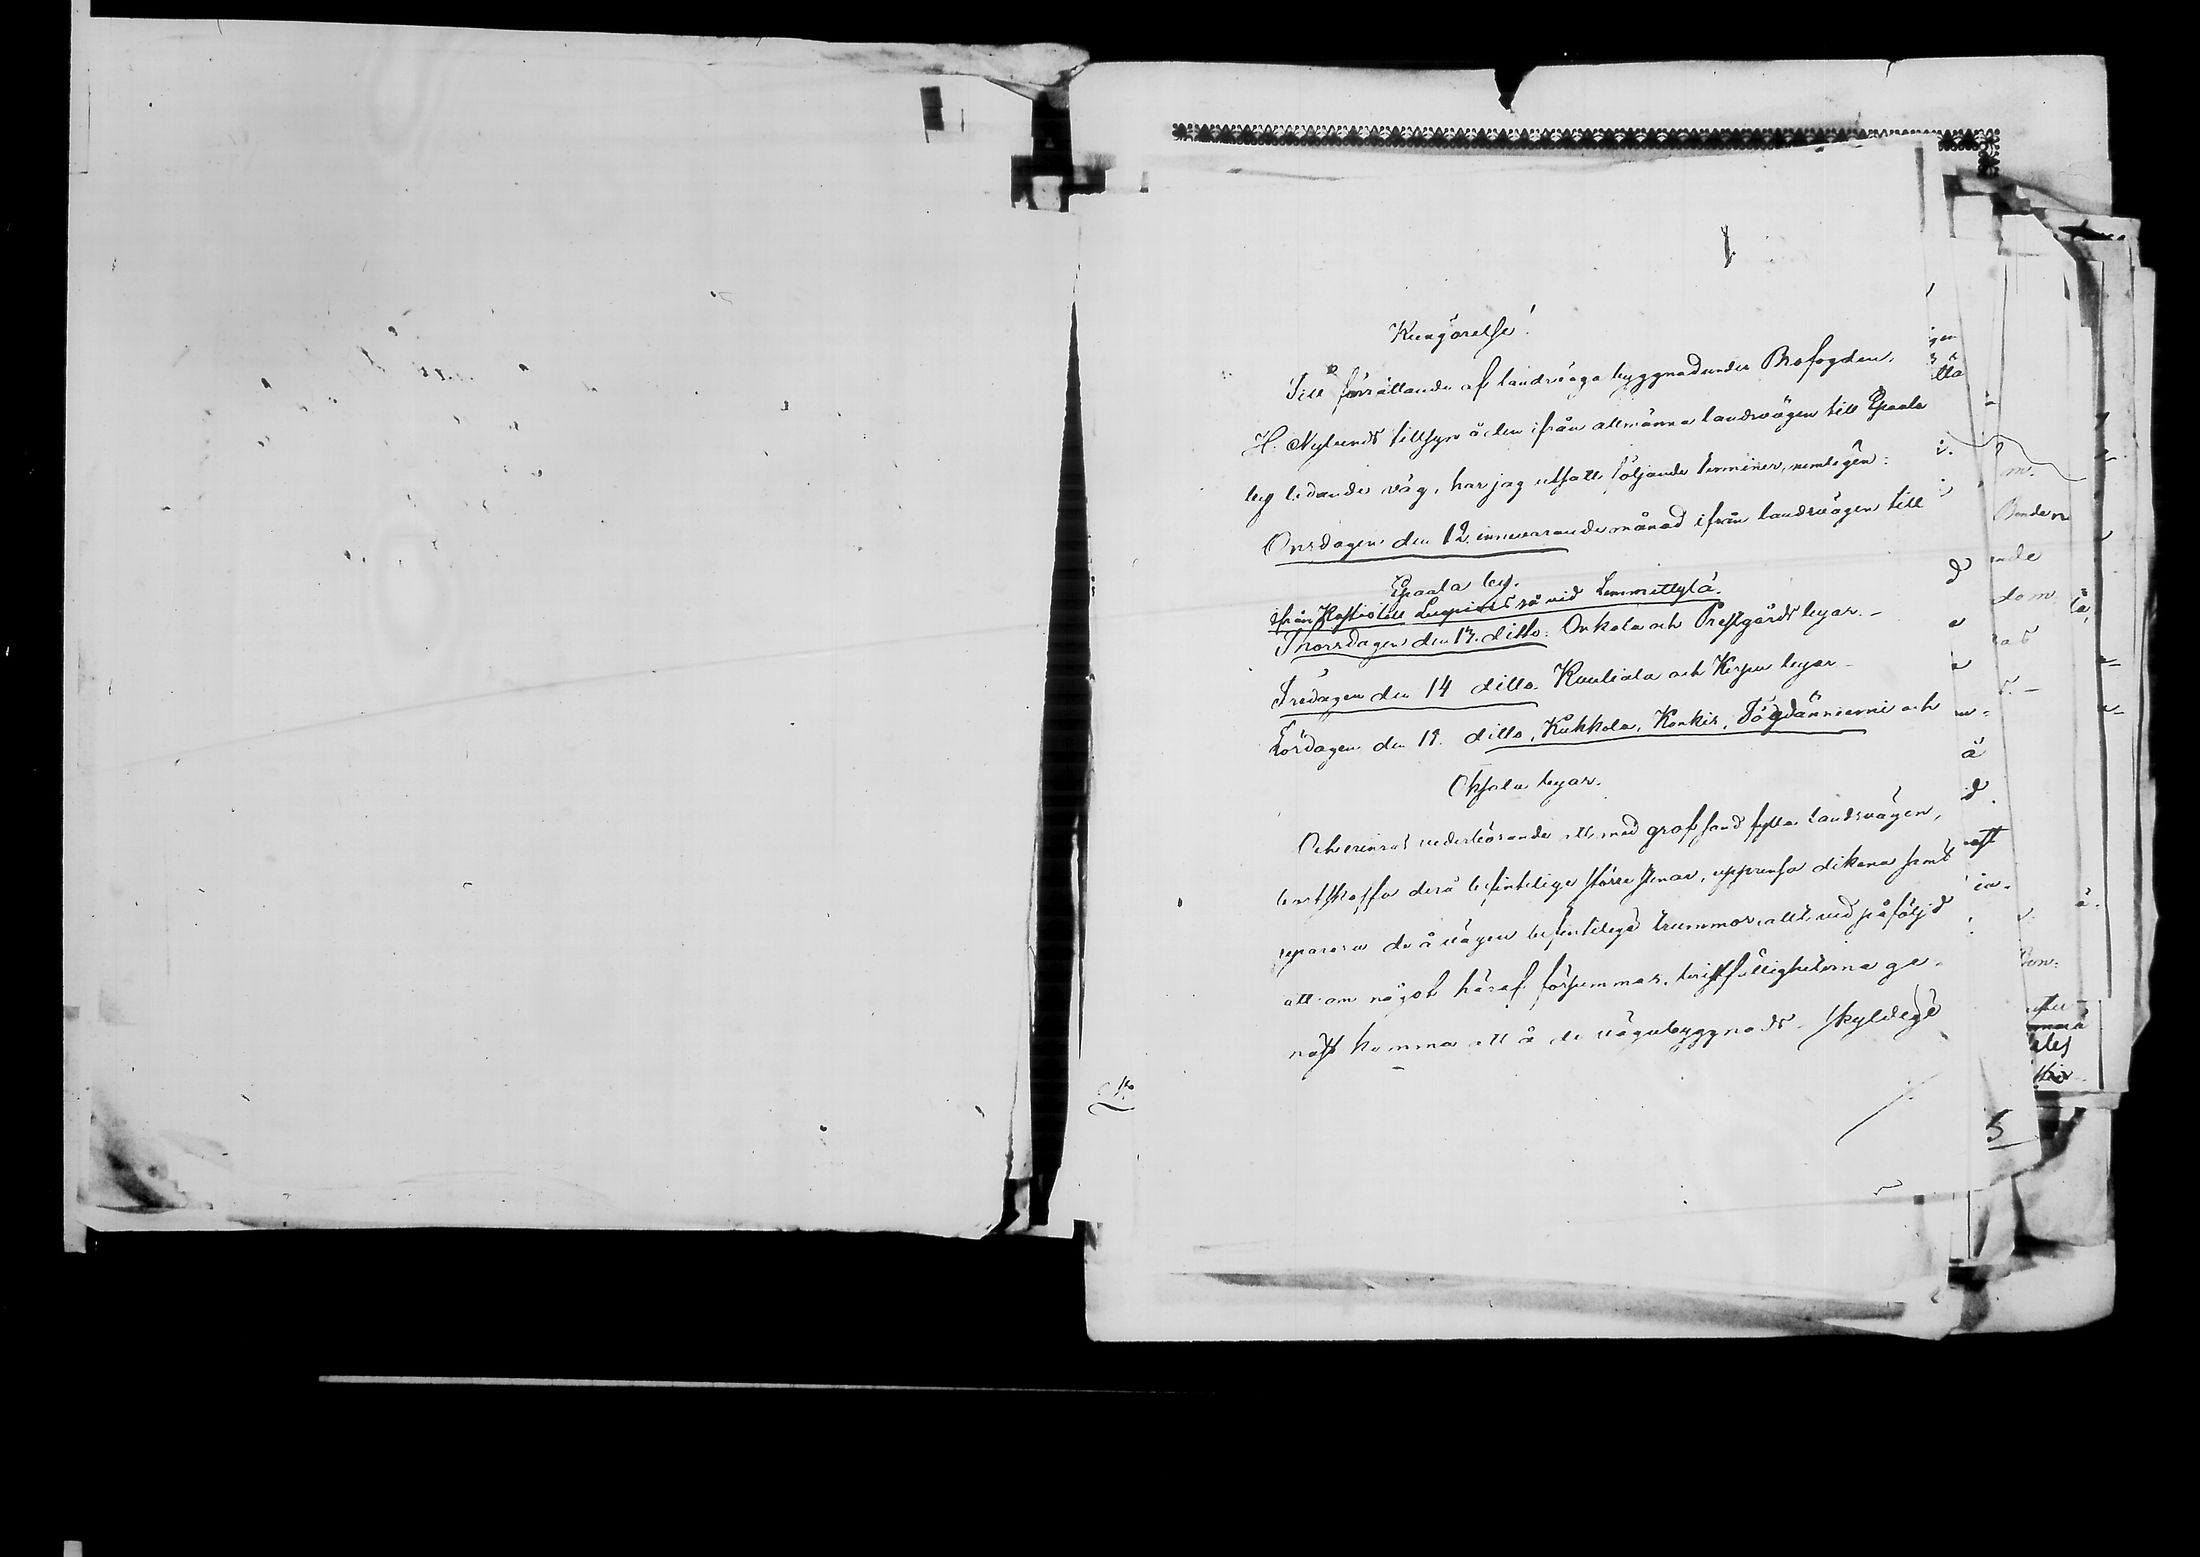 1.
Kungörelse!
Till förrättande af landsvägs byggnad under Brofogden,
H. Nylunds tillsyn å den ifrån allmänna landsvägen till Epaala
by ledande väg, har jag utsatt följande terminer, nemligen:
Onsdagen den 12. innevarande månad ifrån landsvägen till
Epaala by.
ifrån till rå vid Lemmettylä.
Thorsdagen den 13. ditto. Onkola och Prestgårds byar. –
Fredagen den 14 ditto. Kuuliala och Kirpu byar –
Lördagen den 15. ditto, Kukkola, Konkis, och
byar.
Och erinras vederbörande att med grof sand fylla landsvägen,
bortskaffa derå befintelige större stenar, upprensa dikena samt
reparera de å vägen befintelige trummor, allt vid påföljd
att om något häraf försummas, bristfälligheterna ge-
nast komma att å de vägabyggnads-skyldige